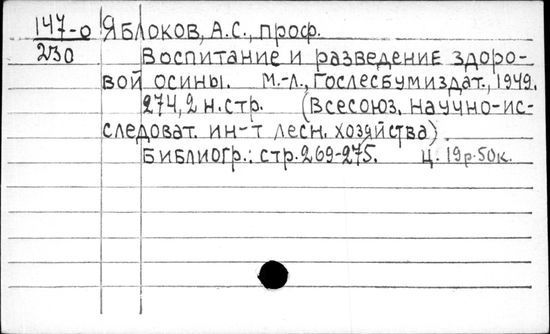 147-о Яблоков, А.С., проф.
230 Воспитание и разведение здоро-
вой осины. М.-Л., Гослесбумиздат, 1949.
274, 2 н.стр. (Всесоюз. научно-ис-
следоват. ин-т лесн. хозяйства).
Библиогр.: стр. 269-275. Ц. 19р.50к.